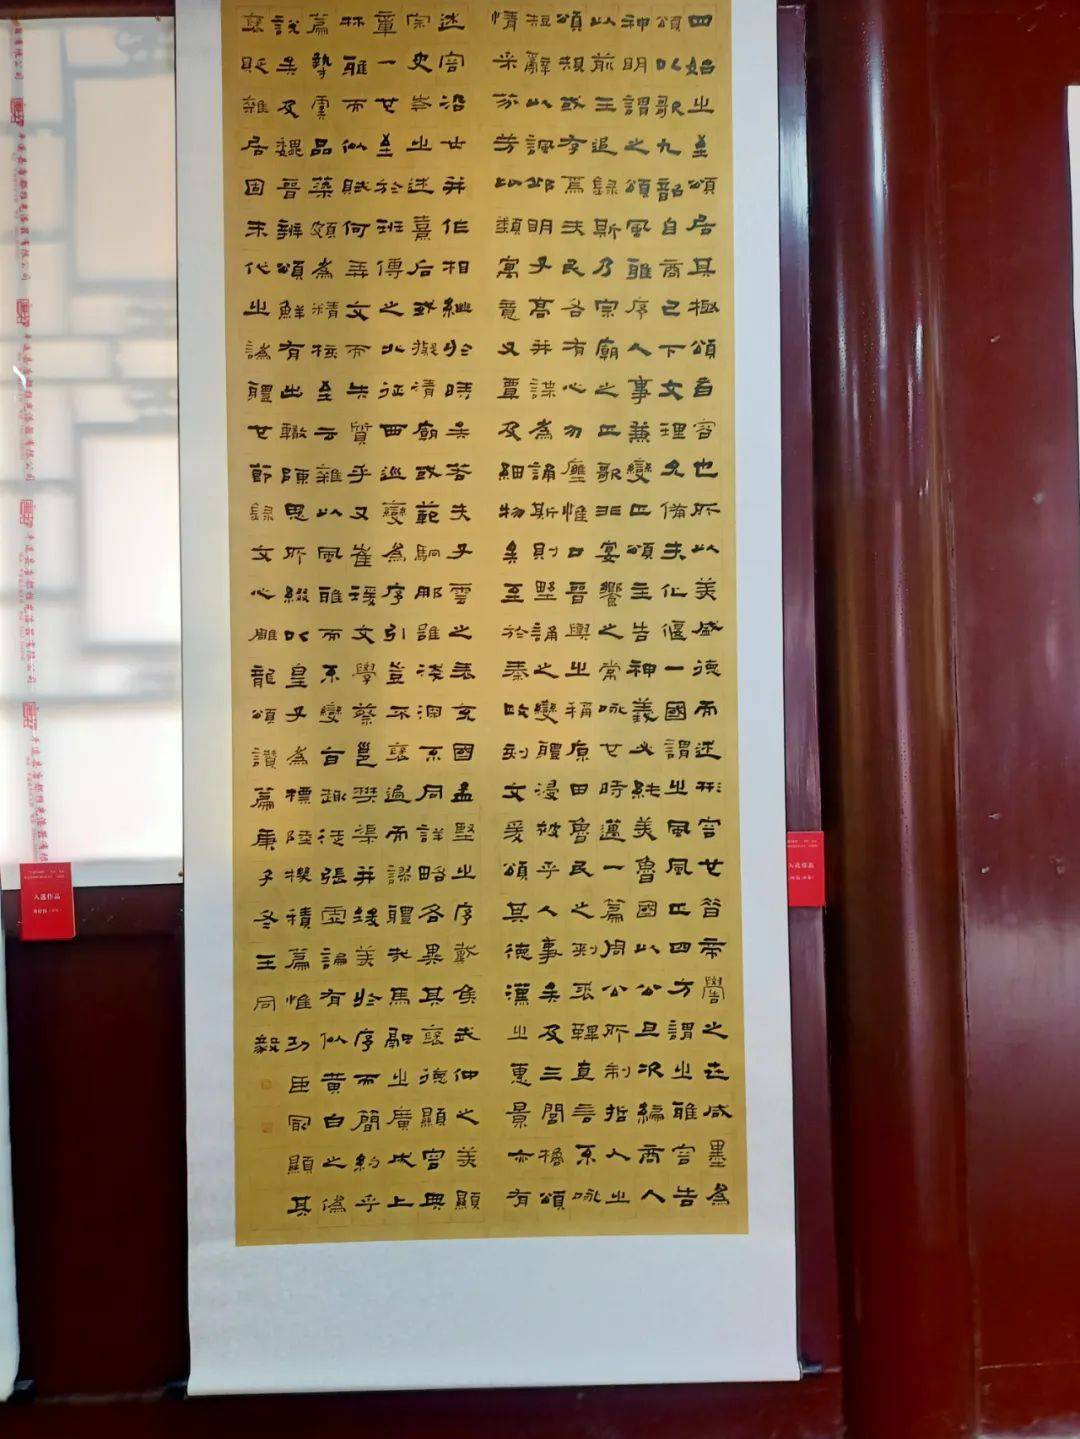 四始之至頌居其極頌者容也所以美盛德而述形容也昔帝嚳之世咸墨為
頌以歌九韶自商已下文理允備夫化偃一國謂之風風正四方謂之雅容告
神明謂之頌風雅序人事兼變正頌主告神義必純美魯國以公旦次編商人
以前王追錄斯乃宗廟之正歌非宴饗之常咏也時邁一篇周公所制哲人之
頌規式存焉夫民各有心勿壅惟口晉輿之稱原田魯民之刺裘鞸直言不咏
短辭以諷邱明子高并諜為誦斯則野誦之變體浸被乎人事矣及三閭橘頌
情采芬芳比類寓意又覃及細物矣至於秦政刻文爰頌其德漢之惠景亦有
述容沿世并作相繼於時矣若夫子雲之表充國孟堅之序戴侯武仲之美顯
宗史岑之述熹后或擬清廟或範駉那雖淺深不同詳略各異其褒德顯容典
章一也至於班傅之北征西巡變為序引豈不褒過而謬體哉馬融之廣成上
林雅而似賦何弄文而失質乎又崔瑗文學蔡邕樊渠并致美於序而簡約乎
篇摯虞品藻頗為精核至云雜以風雅而不變旨趣徒張虛論有似黃白之偽
說矣及魏晉辨頌鮮有出轍陳思所綴以皇子為標陸機積篇惟功臣最顯其
褒貶雜居固末代之訛體也節錄文心雕龍頌讚篇庚子冬王同毅
入选作品
入选作品
平遥县唐都推光漆器有限公司
平遥县唐都推光漆器有限公司
平遥县唐都推光漆器有限公司